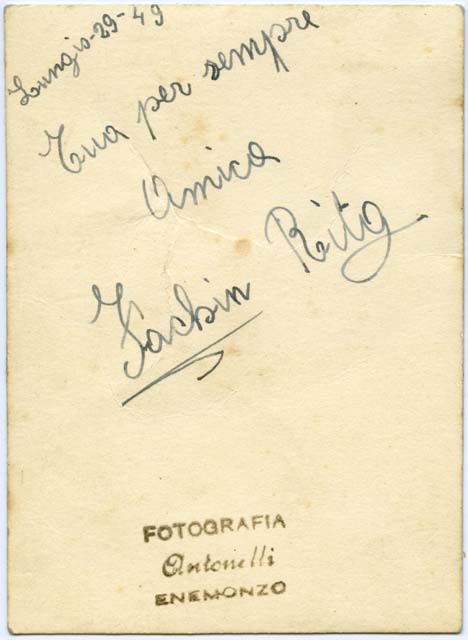 Lungis-29-49
Tua per sempre
Amica
Fachin Rita
FOTOGRAFIA
Antonelli
ENEMONZO